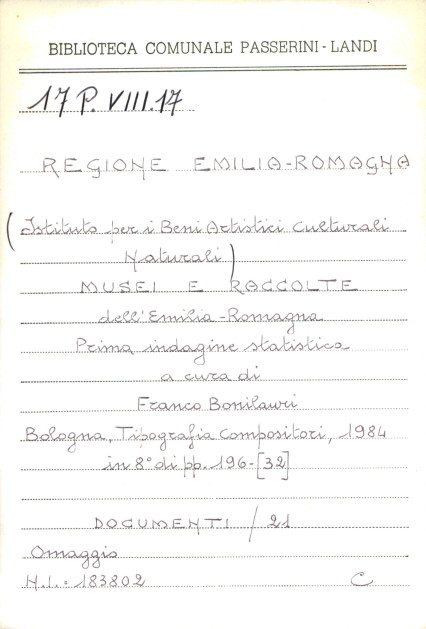 BIBLIOTECA COMUNALE PASSERINI - LANDI
17 P. VIII. 17
REGIONE EMILIA-ROMAGNA
(Istituto per i Beni Artistici Culturali
Naturali)
MUSEI E RACCOLTE
dell'Emilia-Romagna
Prima indagine statistica
a cura di
Franco Bonilauri
Bologna, Tipografia Compositori, 1984
in 8° di pp. 196-[32]
DOCUMENTI / 21
Omaggio
N.I.= 183802 C